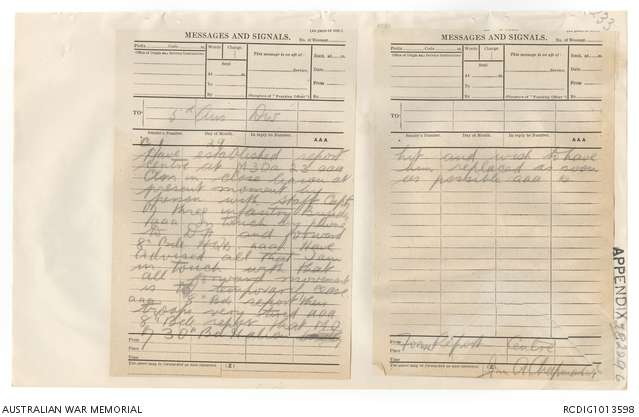 MESSAGES AND SIGNALS.
No. of Message
Prefix Code m.
Words
Charge
This message is on a/c of:
Recd. at m.
Office of Origin and Service Instructions
Sent
At m.
To
By
Service.
(Signature of "Franking Officer")
Date
From
By
TO
5th Aus Div
Sender's Number.
Day of Month.
In reply to Number.
AAA
C 1 29
Have established report
centre at N 30 a 2 3 aaa
Am in close liaison at
present moment by
person with Staff Capt
of three infantry Brigades
aaa In touch by phone
to D H and forward
8th Bde H.Q. aaa Have
advised all that I am
in touch with that
all forward movement
is temporary cease
aaa 8th Bd report their
troops very tired aaa
8th Bde report that M.O.
of 30th Battalion
From
Place
Time
(Z)
(In pads of 100.)
MESSAGES AND SIGNALS.
No. of Message
Prefix Code m.
Words
Charge
This message is on a/c of:
Recd. at m.
Office of Origin and Service Instructions
Sent
At m.
To
By
Service.
(Signature of "Franking Officer")
Date
From
By
TO
Sender's Number.
Day of Month.
In reply to Number.
AAA
hit and wish to have
him replaced as soon
as possible aaa
From Report Centre
Place
Time
(Z)
33
APPENDIX
AUSTRALIAN WAR MEMORIAL
RCDIG1013598